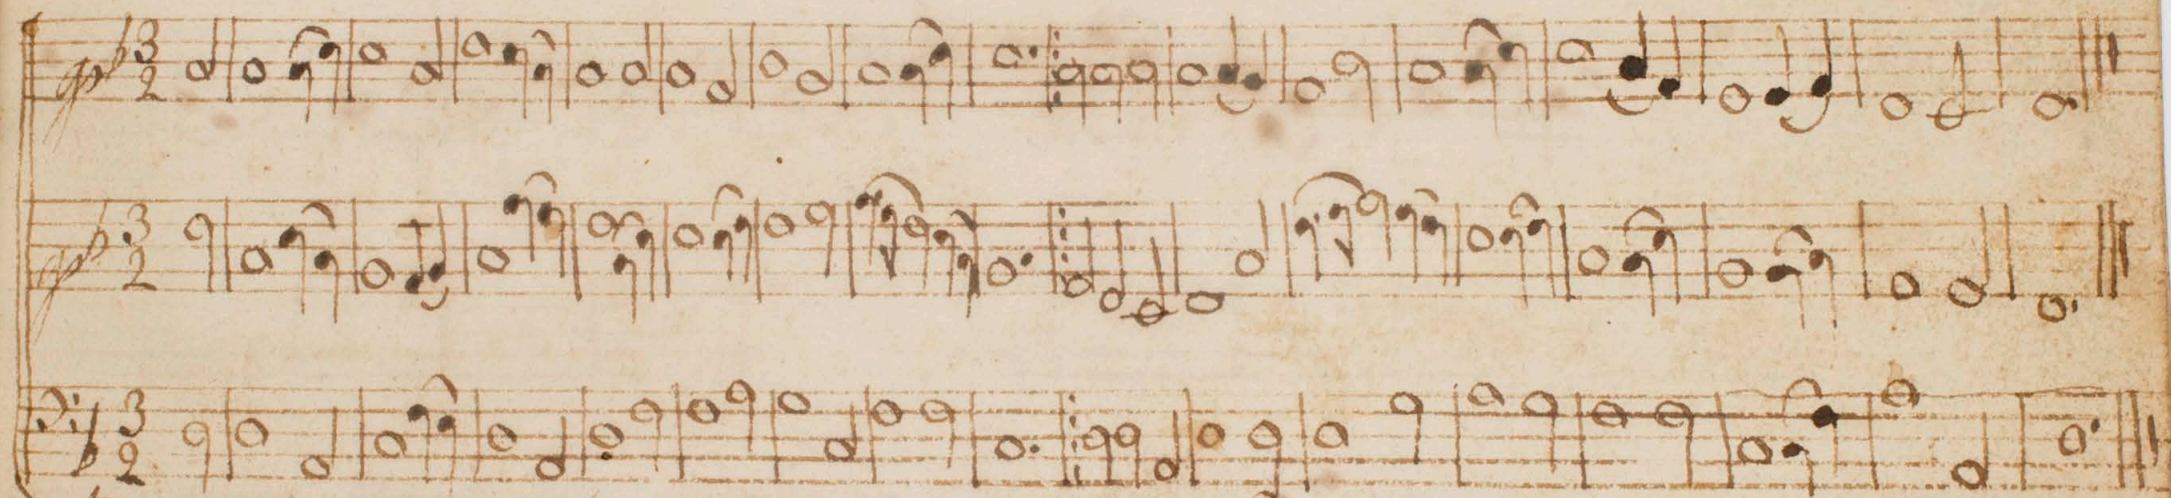 3
2
3
2
3
2